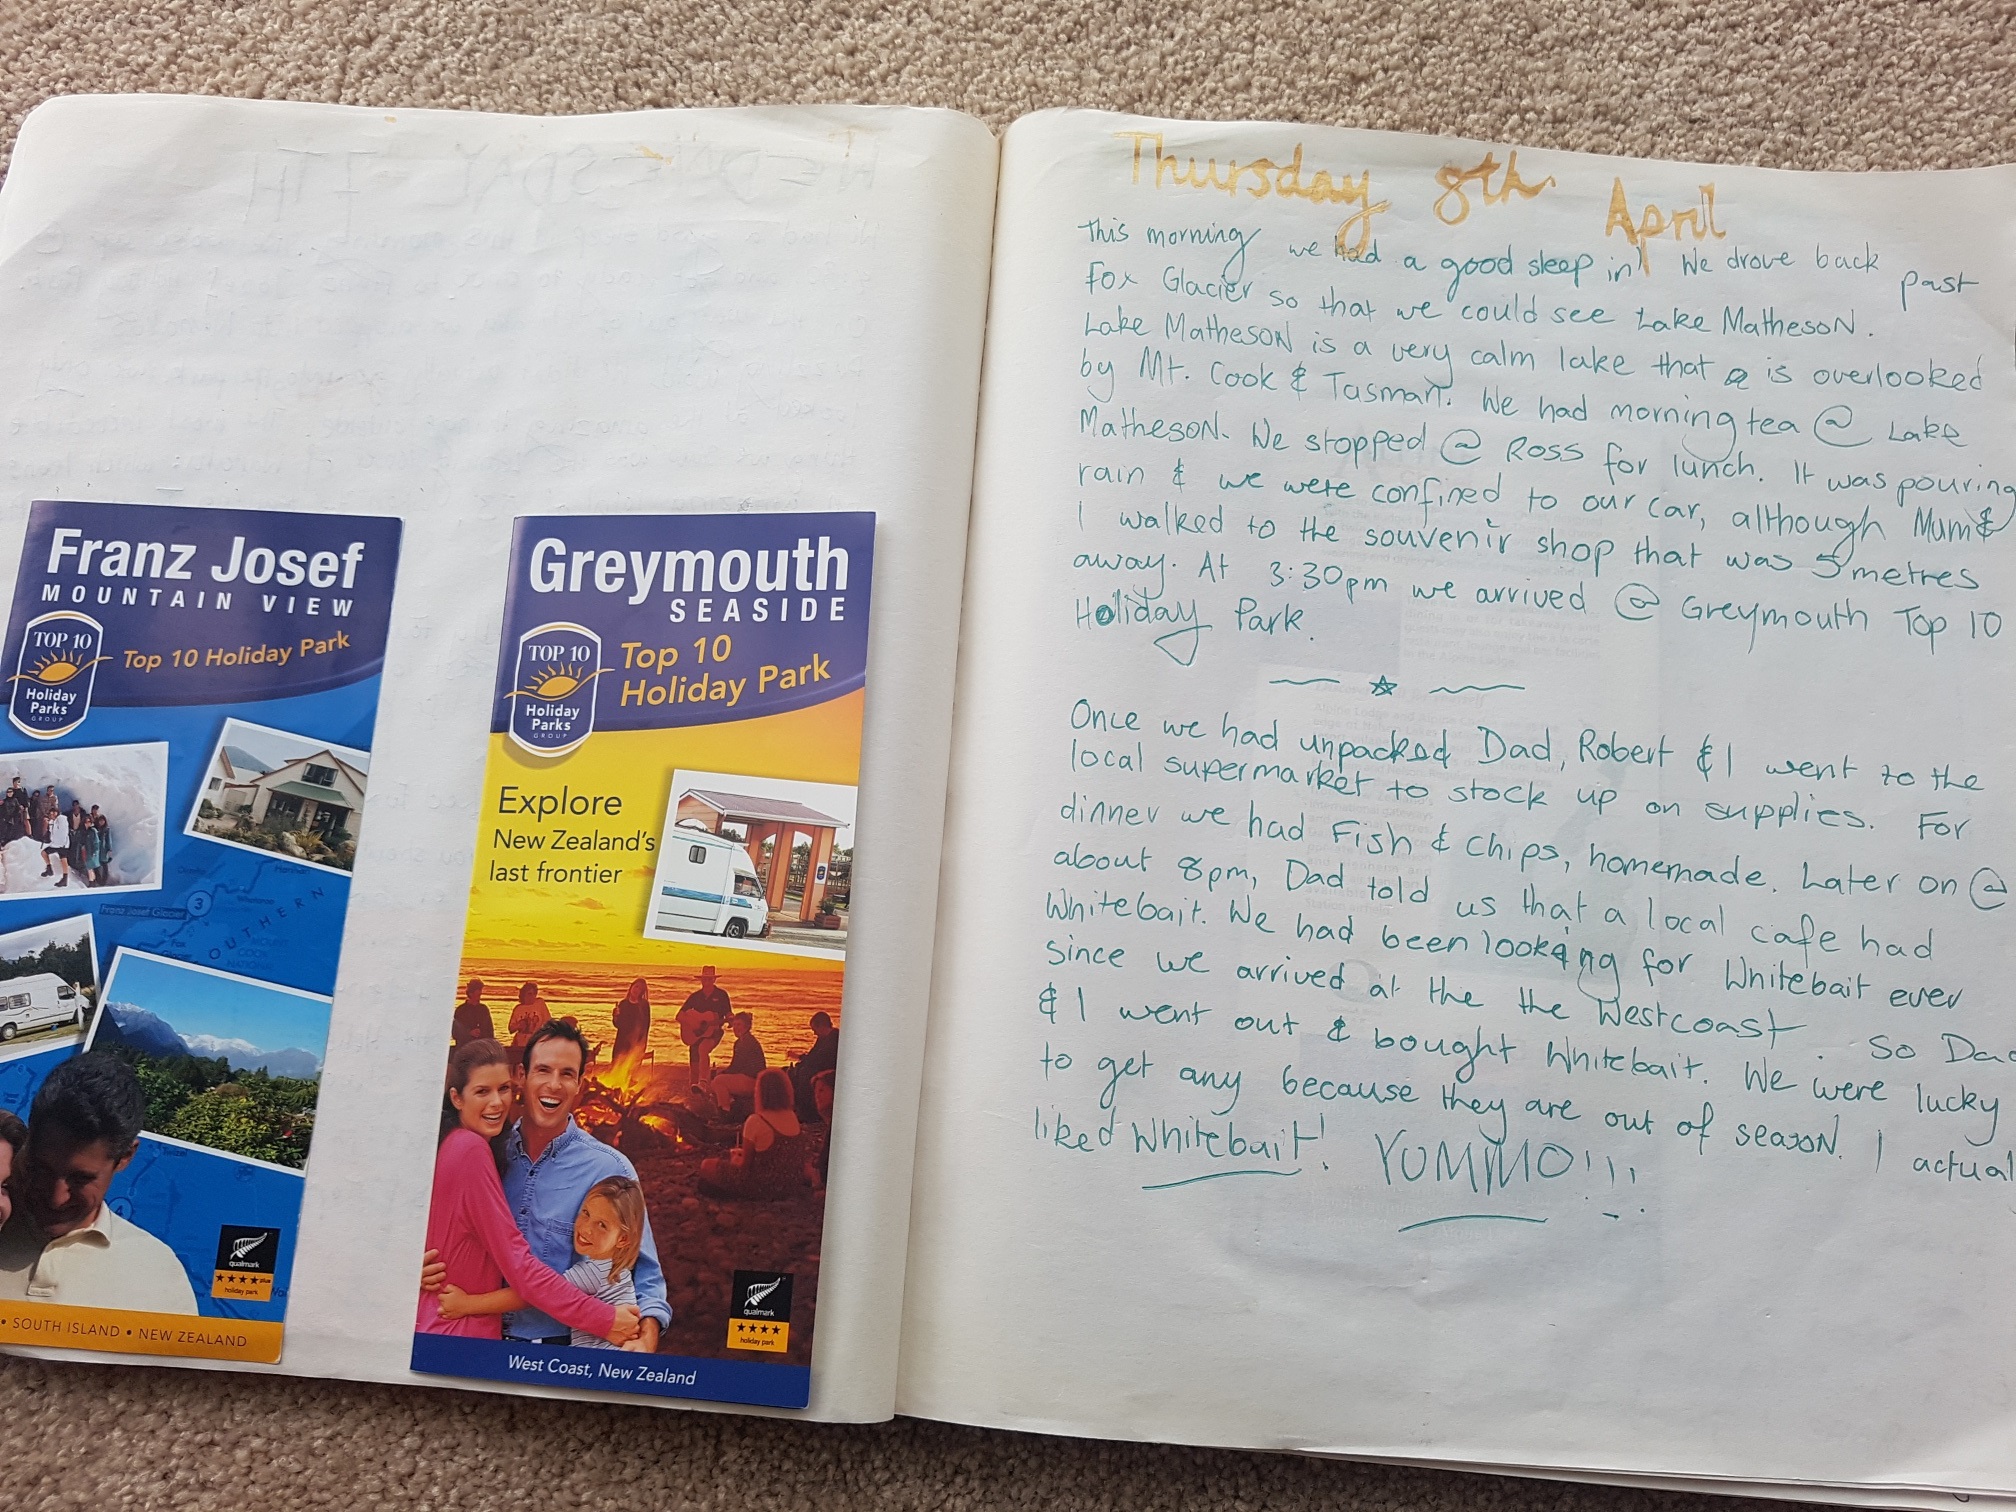 Franz Josef
MOUNTAIN VIEW
TOP 10
Holiday
Parks
GROUP
Top 10 Holiday Park
3
Franz Josef Glacier
SOUTHERN
4
qualmark
holiday park
• SOUTH ISLAND • NEW ZEALAND
Greymouth
SEASIDE
TOP 10
Holiday
Parks
GROUP
Top 10
Holiday Park
Explore
New Zealand's
last frontier
qualmark
holiday park
West Coast, New Zealand
Thursday 8th April
This morning we had a good sleep in! We drove back past
Fox Glacier so that we could see Lake Matheson.
Lake Matheson is a very calm lake that is overlooked
by Mt. Cook & Tasman. We had morning tea @ Lake
Matheson. We stopped @ Ross for lunch. It was pouring
rain & we were confined to our car, although Mum &
I walked to the souvenir shop that was 5 metres
away. At 3:30pm we arrived @ Greymouth Top 10
Holiday Park.
Once we had unpacked Dad, Robert & I went to the
local supermarket to stock up on supplies. For
dinner we had Fish & Chips, homemade. Later on @
about 8pm, Dad told us that a local cafe had
Whitebait. We had been looking for Whitebait ever
since we arrived at the the Westcoast. So Dad
& I went out & bought Whitebait. We were lucky
to get any because they are out of season. I actual
liked Whitebait! YUMMO!!!